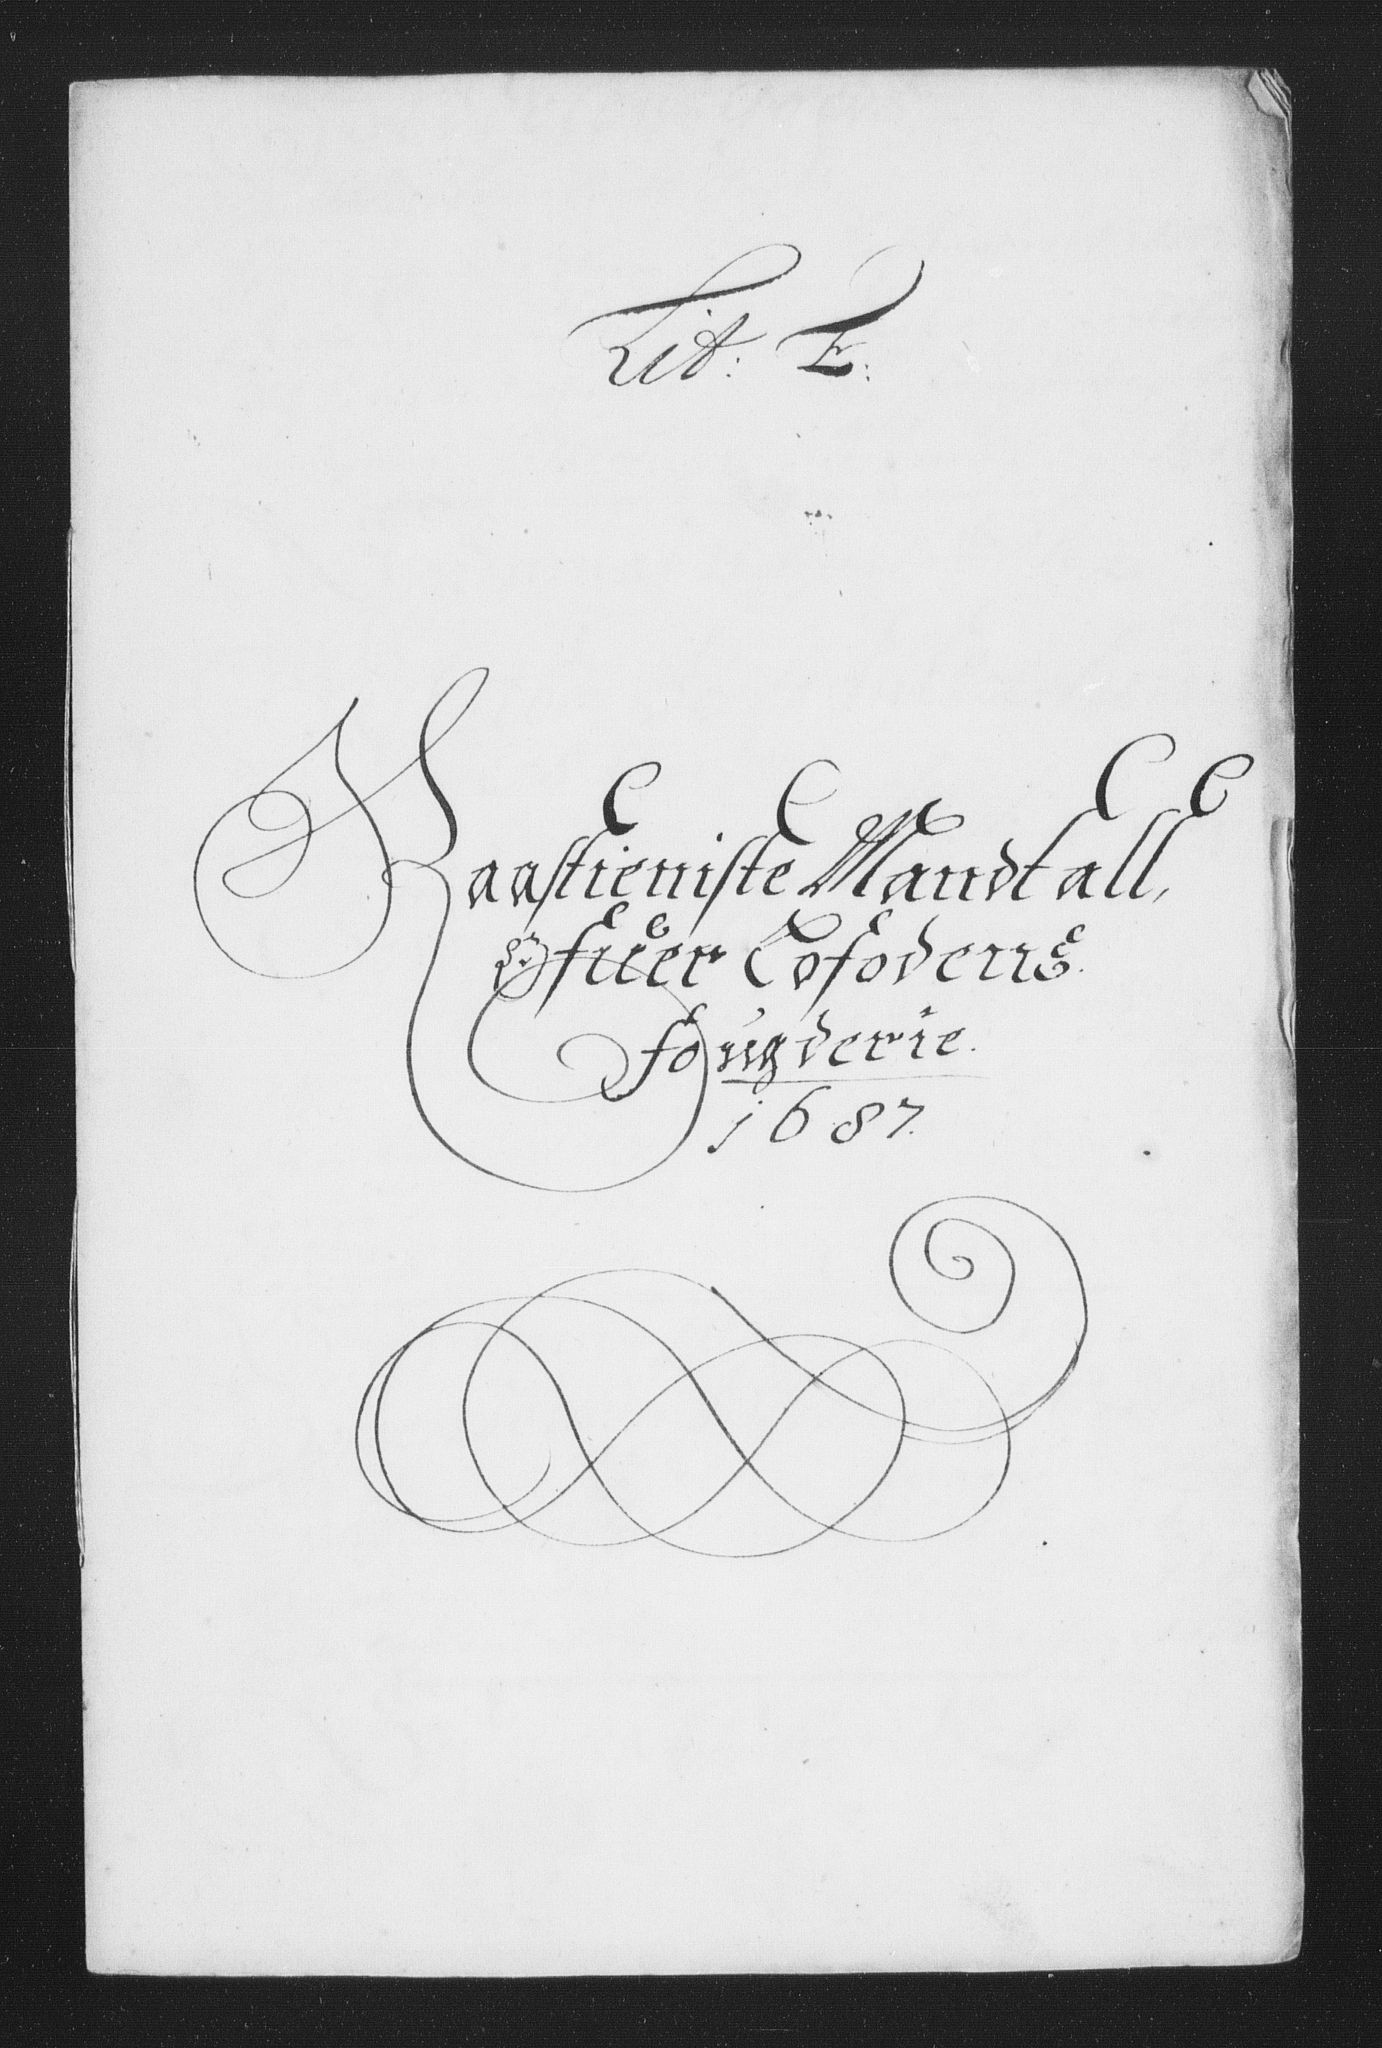 Lit: E:
Rostieniste Mandtall,
Ofuer Lofodens
fougderie.
1687.